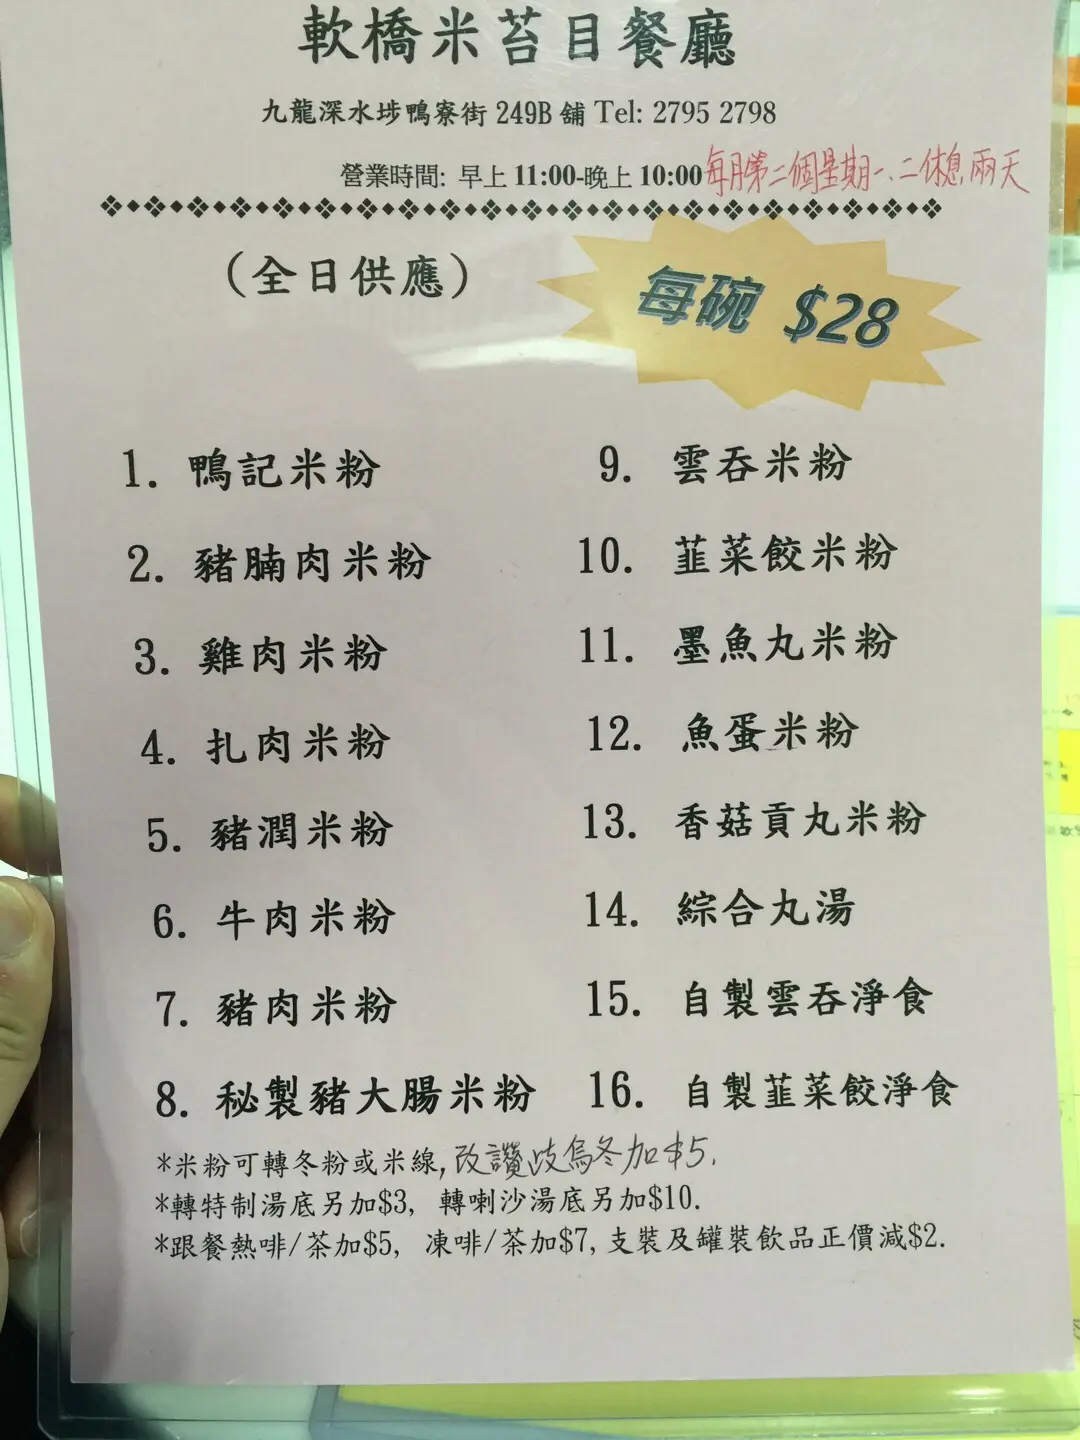 軟橋米苔目餐廳
九龍深水埗鴨寮街 249B 舖 Tel: 2795 2798
營業時間: 早上 11:00-晚上 10:00 每月第二個星期一、二休息兩天
(全日供應)
每碗 $28
1. 鴨記米粉
2. 豬腩肉米粉
3. 雞肉米粉
4. 扎肉米粉
5. 豬潤米粉
6. 牛肉米粉
7. 豬肉米粉
8. 秘製豬大腸米粉
9. 雲吞米粉
10. 韮菜餃米粉
11. 墨魚丸米粉
12. 魚蛋米粉
13. 香菇貢丸米粉
14. 綜合丸湯
15. 自製雲吞淨食
16. 自製韮菜餃淨食
*米粉可轉冬粉或米線,改讚歧烏冬加$5.
*轉特制湯底另加$3, 轉喇沙湯底另加$10.
*跟餐熱啡/茶加$5, 凍啡/茶加$7, 支裝及罐裝飲品正價減$2.